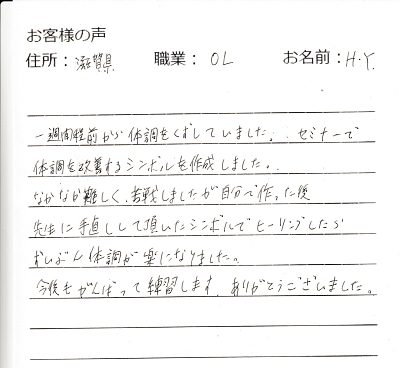 お客様の声
住所：滋賀県 職業：OL お名前：H.Y.
一週間程前から体調をくずしていました。セミナーで
体調を改善するシンボルを作成しました。
なかなか難しく、苦戦しましたが自分で作った後
先生に手直しして頂いたシンボルでヒーリングしたら
ずいぶん体調が楽になりました。
今後もがんばって練習します。ありがとうございました。